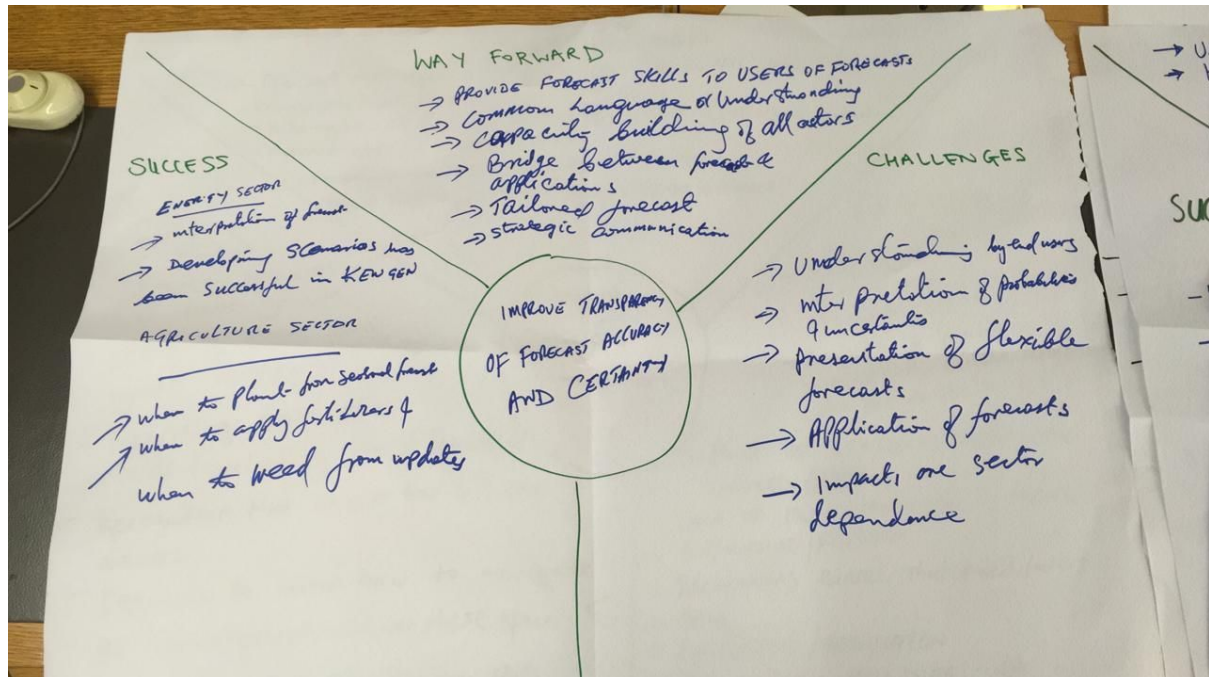 WAY FORWARD
→ PROVIDE FORECAST SKILLS TO USERS OF FORECASTS
→ Common Language or Understanding
→ Capacity building of all actors
→ Bridge between forecast &
applications
→ Tailored forecast
→ Strategic Communication
SUCCESS
ENERGY SECTOR
→ interpretation of
→ Developing Scenarios has
been Successful in KENGEN
AGRICULTURE SECTOR
→ when to Plant from Seasonal
→ when to apply fertilizers &
when to weed from updates
IMPROVE TRANSPARENCY
OF FORECAST ACCURACY
AND CERTAINTY
CHALLENGES
→ Understanding by end users
→ interpretation of probabilities
& uncertainties
→ presentation of flexible
forecasts
→ Application of forecasts
→ Impacts are sector
dependance
→ U
→
SUC